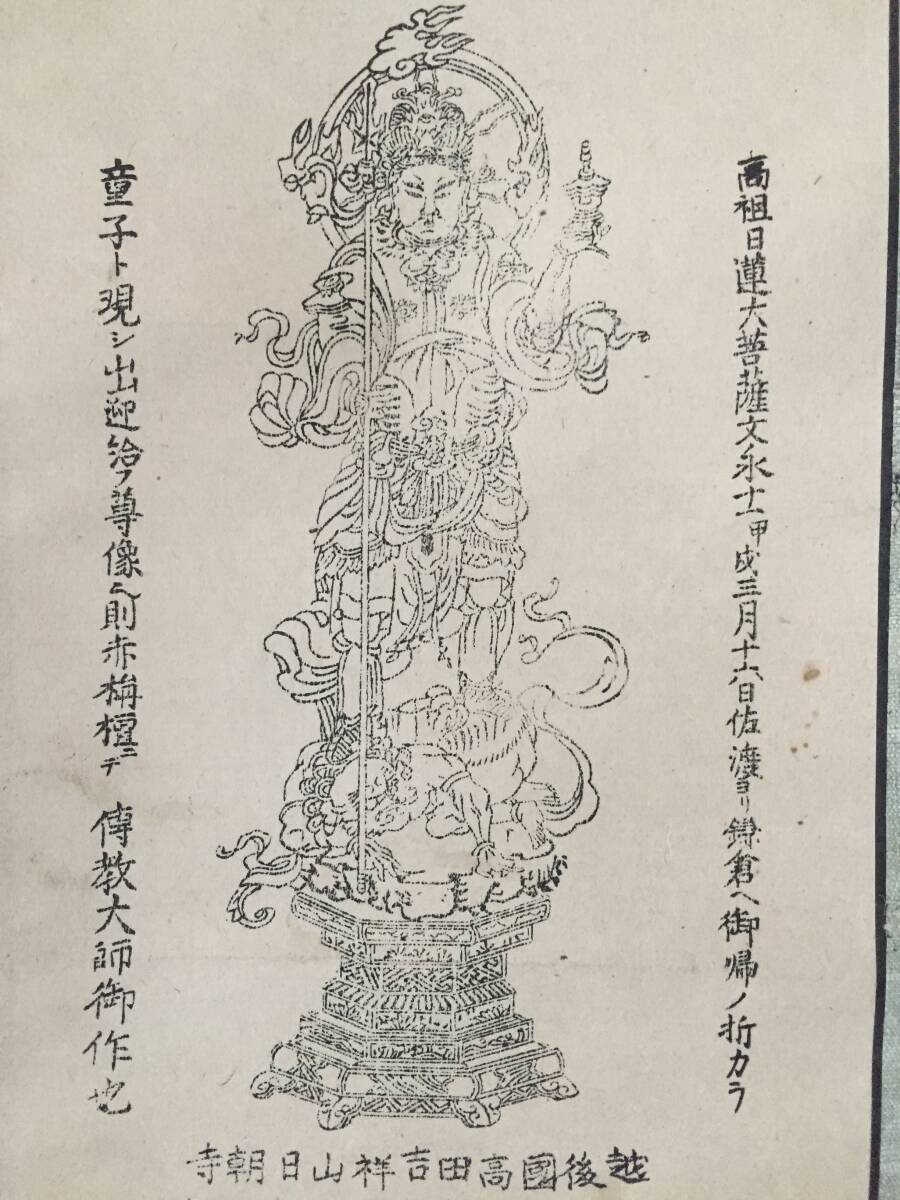 高祖日蓮大菩薩文永十一甲戌三月十六日佐渡ヨリ鎌倉へ御帰ノ折カラ
童子ト現シ出迎給フ尊像ニ則赤栴檀ニテ 傳教大師御作也
越後國高田吉祥山日朝寺